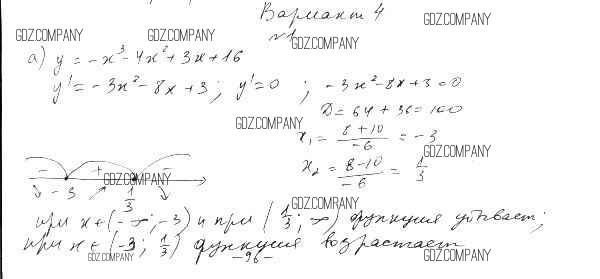 Вариант 4
GDZ.COMPANY
GDZ.COMPANY GDZ.COMPANY №1 GDZ.COMPANY
а) y = -x³ - 4x² + 3x + 16
y' = -3x² - 8x + 3; y' = 0; -3x² - 8x + 3 = 0
D = 64 + 36 = 100
GDZ.COMPANY
x₁ = (8+10)/(-6) = -3
GDZ.COMPANY
x₂ = (8-10)/(-6) = 1/3
- + -
GDZ.COMPANY
-3 1/3
GDZ.COMPANY
при x ∈ (-∞; -3) и при (1/3; ∞) функция убывает;
при x ∈ (-3; 1/3) функция возрастает
GDZ.COMPANY -96- GDZ.COMPANY